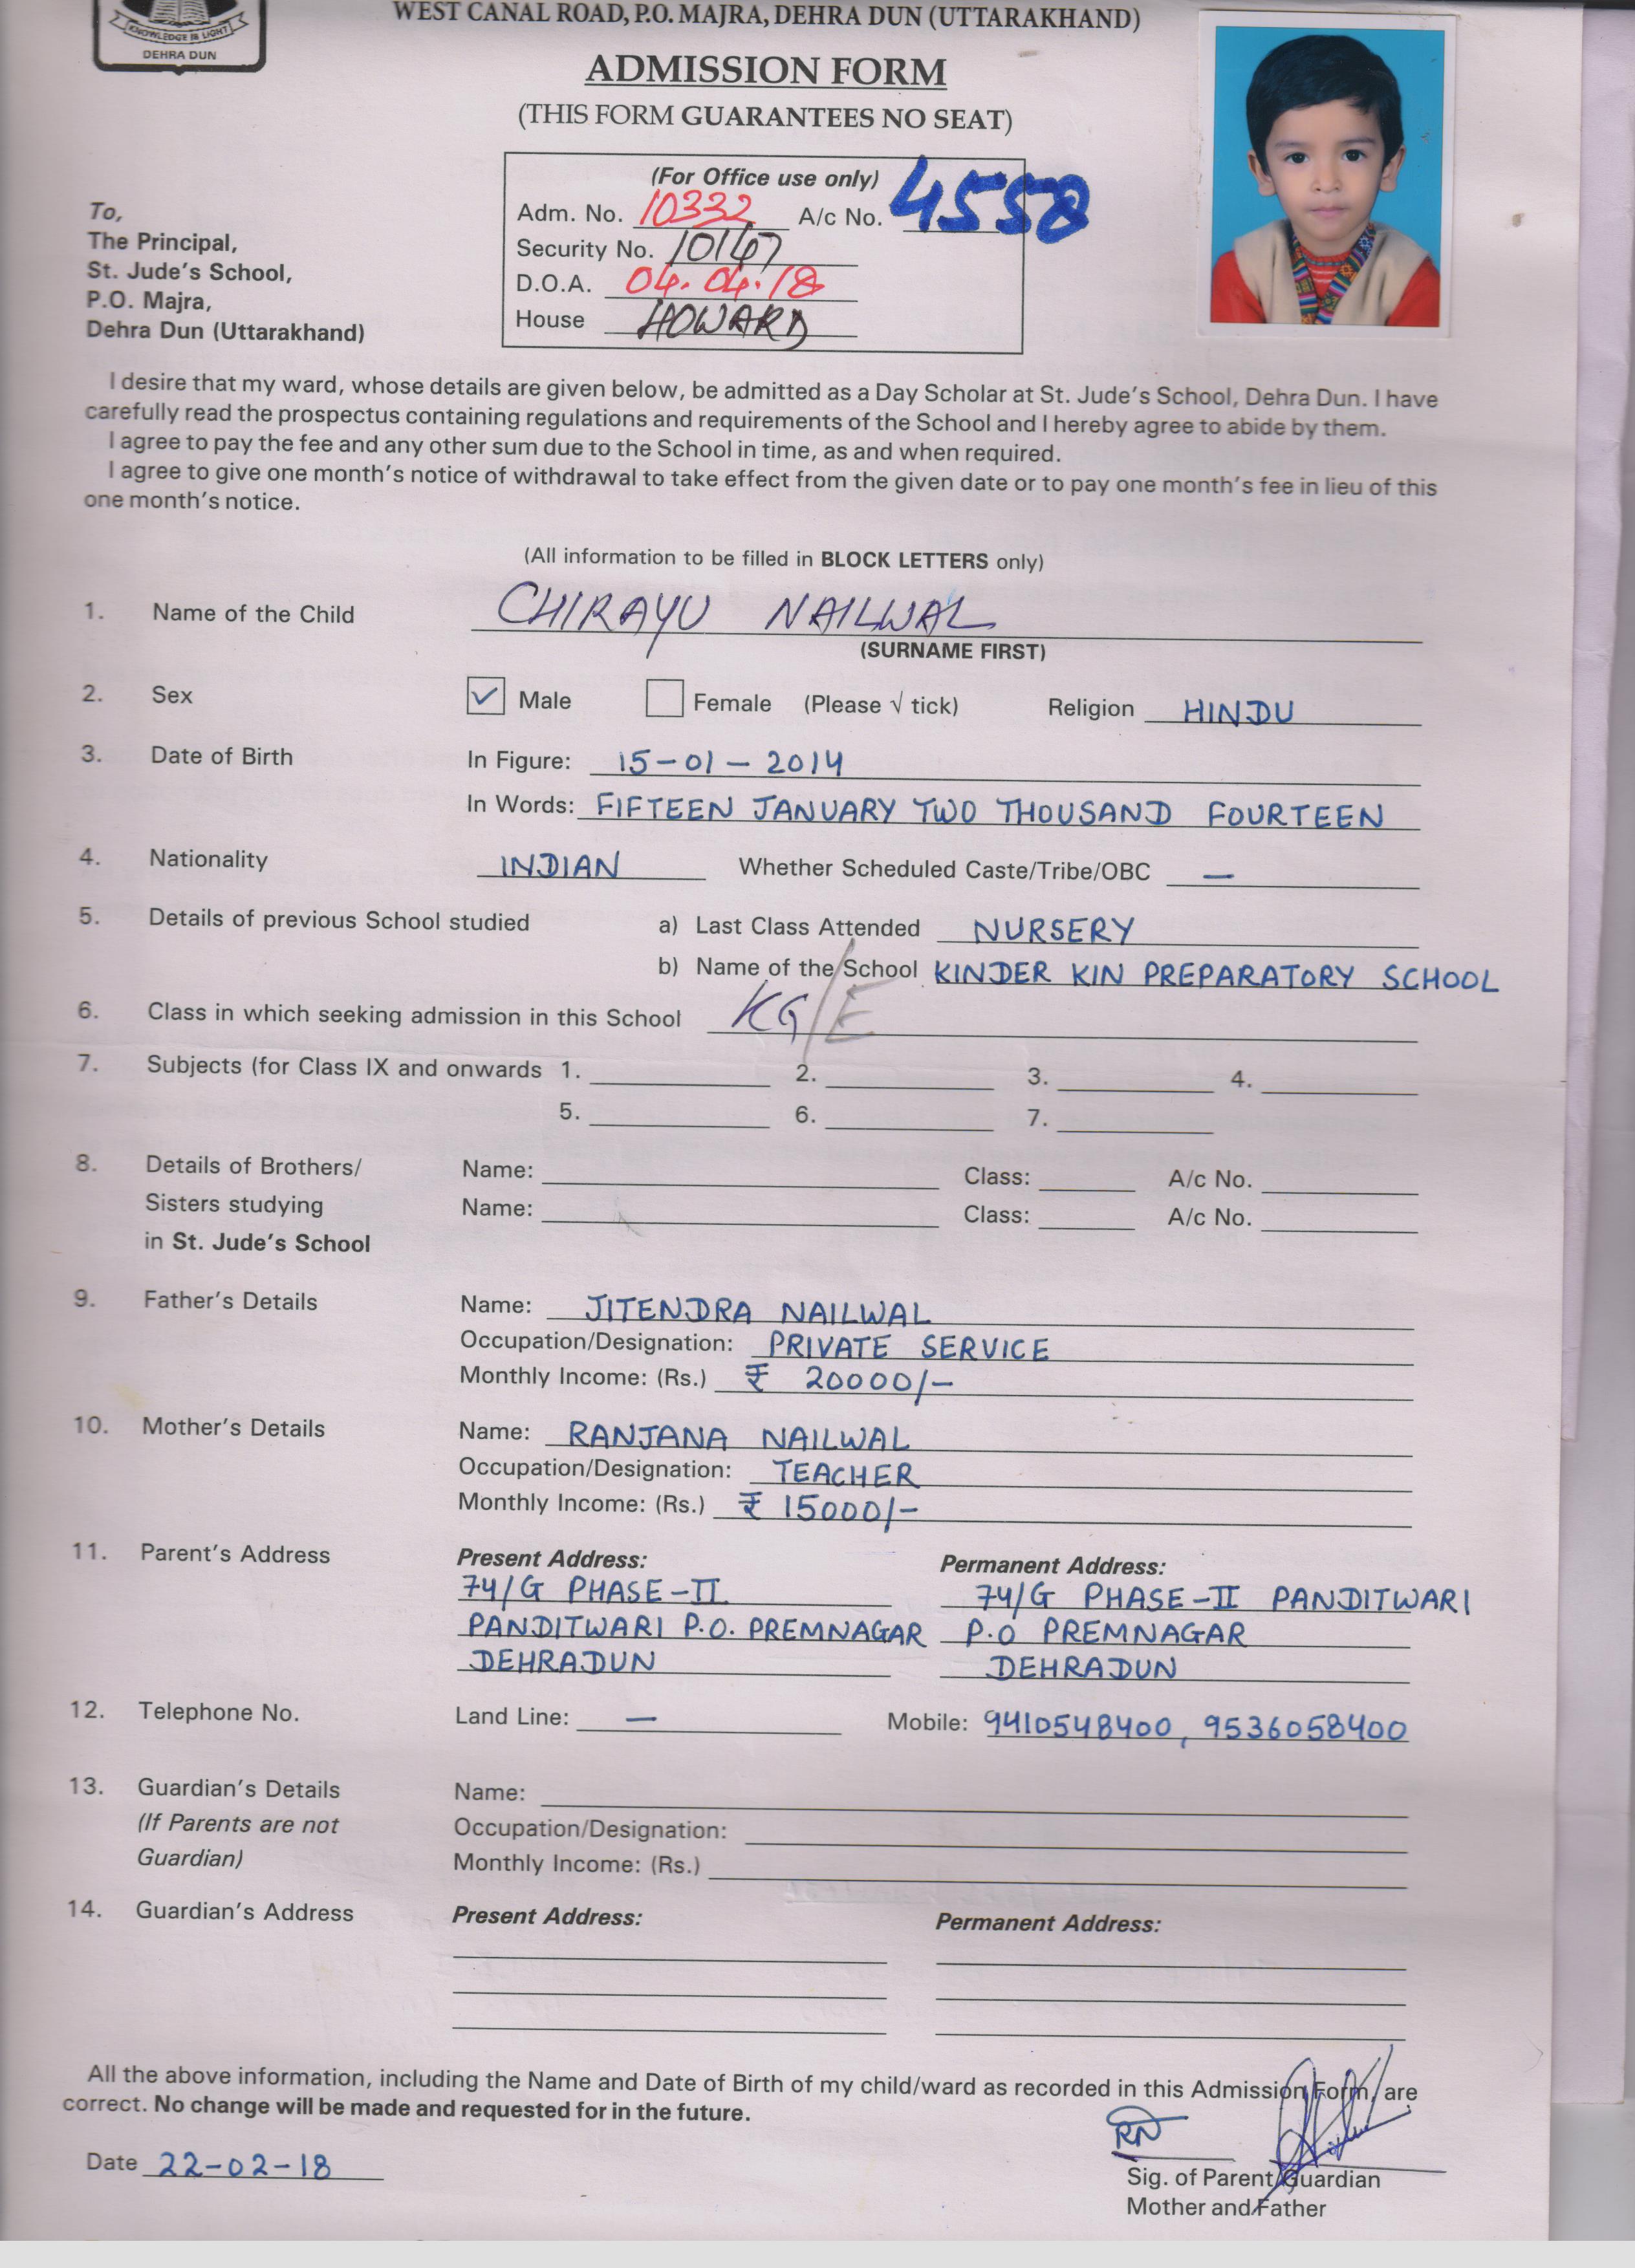 KNOWLEDGE IS LIGHT
DEHRA DUN
WEST CANAL ROAD, P.O. MAJRA, DEHRA DUN (UTTARAKHAND)
ADMISSION FORM
(THIS FORM GUARANTEES NO SEAT)
(For Office use only)
Adm. No. 10332 A/c No. 4558
Security No. 10147
D.O.A. 04.04.18
House HOWARD
To,
The Principal,
St. Jude's School,
P.O. Majra,
Dehra Dun (Uttarakhand)
I desire that my ward, whose details are given below, be admitted as a Day Scholar at St. Jude's School, Dehra Dun. I have
carefully read the prospectus containing regulations and requirements of the School and I hereby agree to abide by them.
I agree to pay the fee and any other sum due to the School in time, as and when required.
I agree to give one month's notice of withdrawal to take effect from the given date or to pay one month's fee in lieu of this
one month's notice.
(All information to be filled in BLOCK LETTERS only)
1. Name of the Child CHIRAYU NAILWAL
(SURNAME FIRST)
2. Sex ✓ Male Female (Please √ tick) Religion HINDU
3. Date of Birth In Figure: 15-01-2014
In Words: FIFTEEN JANUARY TWO THOUSAND FOURTEEN
4. Nationality INDIAN Whether Scheduled Caste/Tribe/OBC —
5. Details of previous School studied a) Last Class Attended NURSERY
b) Name of the School KINDER KIN PREPARATORY SCHOOL
6. Class in which seeking admission in this School KG/E
7. Subjects (for Class IX and onwards 1. 2. 3. 4.
5. 6. 7.
8. Details of Brothers/ Name: Class: A/c No.
Sisters studying Name: Class: A/c No.
in St. Jude's School
9. Father's Details Name: JITENDRA NAILWAL
Occupation/Designation: PRIVATE SERVICE
Monthly Income: (Rs.) ₹ 20000/-
10. Mother's Details Name: RANJANA NAILWAL
Occupation/Designation: TEACHER
Monthly Income: (Rs.) ₹ 15000/-
11. Parent's Address Present Address: Permanent Address:
74/G PHASE-II 74/G PHASE-II PANDITWARI
PANDITWARI P.O. PREMNAGAR P.O PREMNAGAR
DEHRADUN DEHRADUN
12. Telephone No. Land Line: — Mobile: 9410548400, 9536058400
13. Guardian's Details Name:
(If Parents are not Occupation/Designation:
Guardian) Monthly Income: (Rs.)
14. Guardian's Address Present Address: Permanent Address:
All the above information, including the Name and Date of Birth of my child/ward as recorded in this Admission Form, are
correct. No change will be made and requested for in the future.
RN
Date 22-02-18
Sig. of Parent/Guardian
Mother and Father